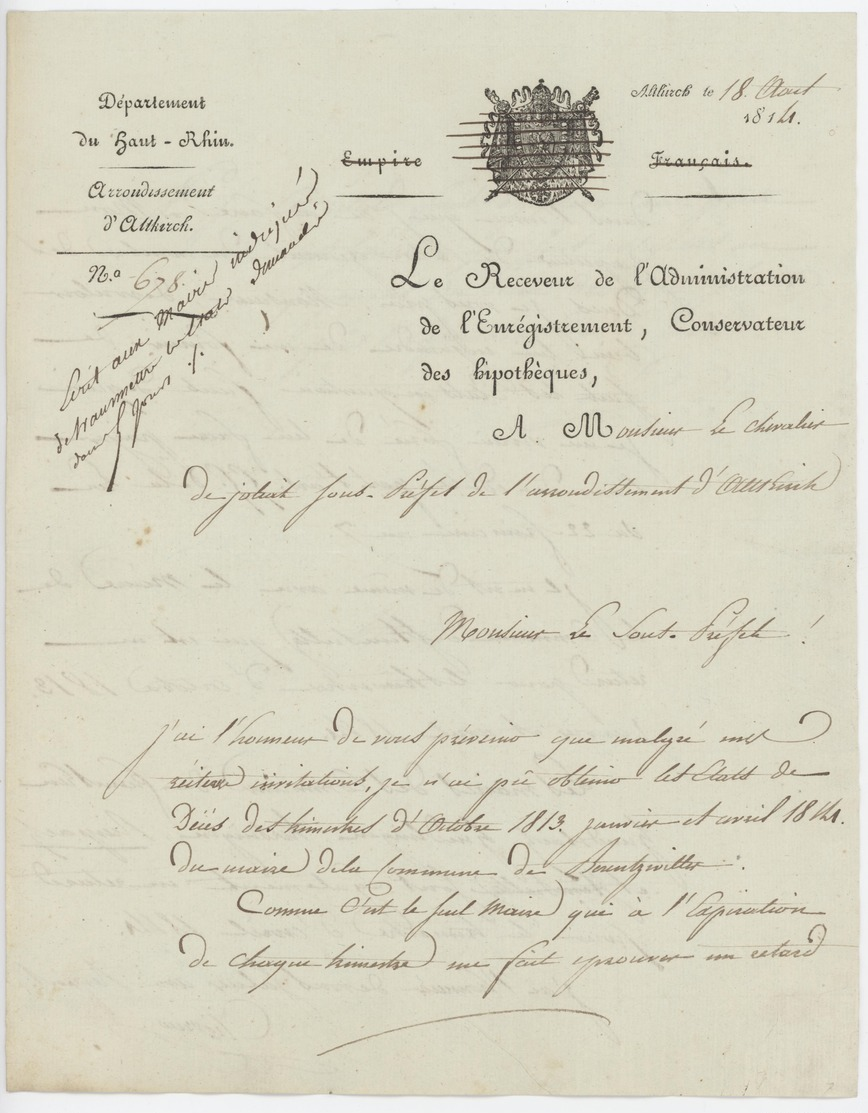 Département
du Haut-Rhin.
Arrondissement
d'Altkirch.
N.o 678.
Ecrit aux Maires
de transmettre les états demandés
dans 5 jours ./.
Altkirch le 18 Aout
1814.
Empire Français.
Le Receveur de l'Administration
de l'Enrégistrement, Conservateur
des hipothèques,
A Monsieur Le chevalier
de joliat Sous-Préfet de l'arrondissement d'Altkirch
Monsieur Le Sous-Préfet !
j'ai l'honneur de vous prévenir que malgré mes
réiteré invitations, je n'ai pû obtenir les Etats de
Décés des trimestres d'Octobre 1813. janvier et avril 1814.
du maire dela Commune de
Comme C'est le seul Maire qui à l'Expiration
de chaque trimestre me fait eprouver un retard